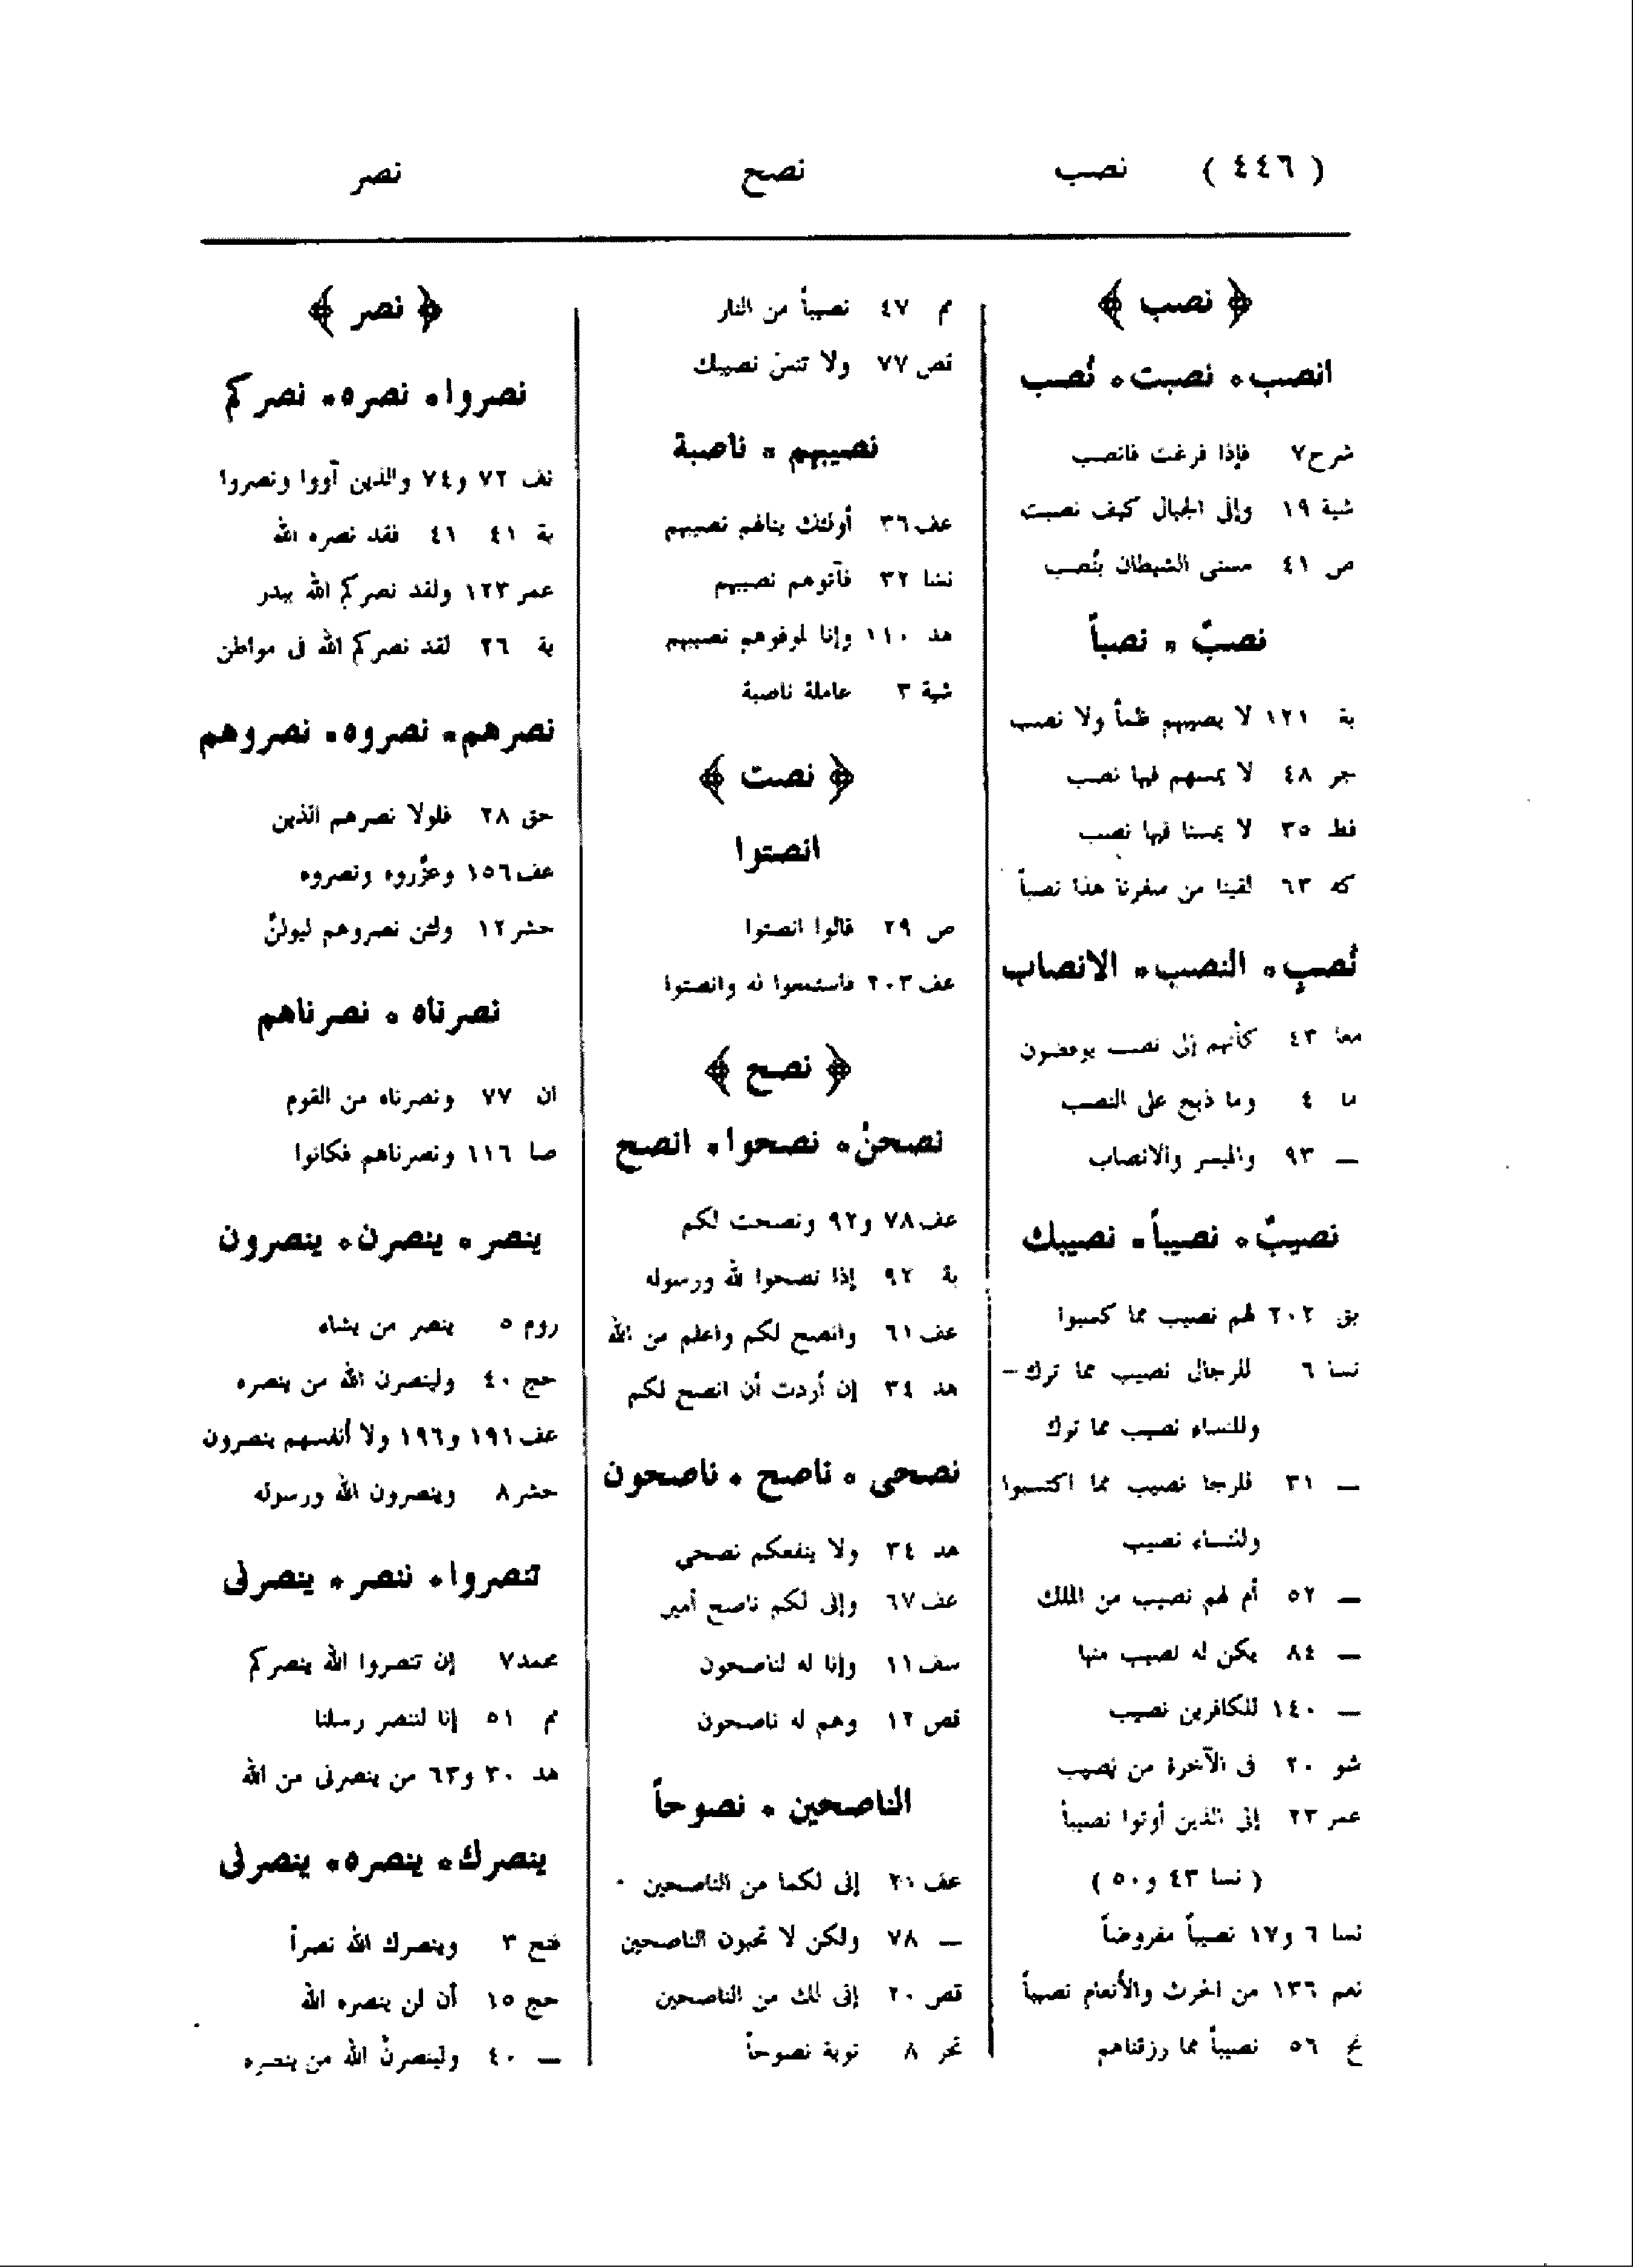 ( ٤٤٦ ) نصب نصح نصر
﴿ نصب ﴾
انصب * نصبت * نُصب
شرح ٧ فإذا فرغت فانصب
شية ١٩ وإلى الجبال كيف نصبت
ص ٤١ مسنى الشيطان بنُصب
نصبٌ * نصباً
بة ١٢١ لا يصيبهم ظمأ ولا نصب
جر ٤٨ لا يمسهم فيها نصب
فط ٣٥ لا يمسنا فيها نصب
كه ٦٣ لقينا من سفرنا هذا نصباً
نُصبٍ * النصب * الانصاب
معا ٤٣ كأنهم إلى نصب يوفضون
ما ٤ وما ذبح على النصب
— ٩٣ والميسر والانصاب
نصيبٌ * نصيباً * نصيبك
بق ٢٠٢ لهم نصيب مما كسبوا
نسا ٦ للرجال نصيب مما ترك —
وللنساء نصيب مما ترك
— ٣١ للرجا نصيب مما اكتسبوا
وللنساء نصيب
— ٥٢ أم لهم نصيب من الملك
— ٨٤ يكن له نصيب منها
— ١٤٠ للكافرين نصيب
شو ٢٠ فى الآخرة من نصيب
عمر ٢٣ إلى الذين أوتوا نصيباً
( نسا ٤٣ و٥٠ )
نسا ٦ و١٧ نصيباً مفروضاً
نعم ١٣٦ من الحرث والأنعام نصيباً
نح ٥٦ نصيباً مما رزقناهم
مم ٤٧ نصيباً من النار
قص ٧٧ ولا تنسَ نصيبك
نصيبهم * ناصبة
عف ٣٦ أولئك ينالهم نصيبهم
نسا ٣٢ فآتوهم نصيبهم
هد ١١٠ وإنا لموفوهم نصيبهم
شية ٣ عاملة ناصبة
﴿ نصت ﴾
انصتوا
ص ٢٩ قالوا انصتوا
عف ٢٠٣ فاستمعوا له وانصتوا
﴿ نصح ﴾
نصحتُ * نصحوا * انصح
عف ٧٨ و٩٢ ونصحت لكم
بة ٩٢ إذا نصحوا لله ورسوله
عف ٦١ وانصح لكم واعلم من الله
هد ٣٤ إن أردت أن انصح لكم
نصحى * ناصح * ناصحون
هد ٣٤ ولا ينفعكم نصحى
عف ٦٧ وإنى لكم ناصح أمين
سف ١١ وإنا له لناصحون
قص ١٢ وهم له ناصحون
الناصحين * نصوحاً
عف ٢٠ إنى لكما من الناصحين
— ٧٨ ولكن لا تحبون الناصحين
قص ٢٠ إنى لك من الناصحين
تحر ٨ توبة نصوحاً
﴿ نصر ﴾
نصروا * نصره * نصركم
نف ٧٢ و٧٤ والذين آووا ونصروا
بة ٤١ ٤١ فقد نصره الله
عمر ١٢٣ ولقد نصركم الله ببدر
بة ٢٦ لقد نصركم الله فى مواطن
نصرهم * نصروه * نصروهم
حق ٢٨ فلولا نصرهم الذين
عف ١٥٦ وعزَّروه ونصروه
حشر ١٢ ولئن نصروهم ليولنَّ
نصرناه * نصرناهم
ان ٧٧ ونصرناه من القوم
صا ١١٦ ونصرناهم فكانوا
ينصر * ينصرن * ينصرون
روم ٥ ينصر من يشاء
حج ٤٠ ولينصرن الله من ينصره
عف ١٩١ و١٩٦ ولا أنفسهم ينصرون
حشر ٨ وينصرون الله ورسوله
تنصروا * ننصر * ينصرنى
محمد ٧ إن تنصروا الله ينصركم
مم ٥١ إنا لننصر رسلنا
هد ٣٠ و٦٣ من ينصرنى من الله
ينصرك * ينصره * ينصرنى
فتح ٣ وينصرك الله نصراً
حج ١٥ أن لن ينصره الله
— ٤٠ ولينصرنَّ الله من ينصره